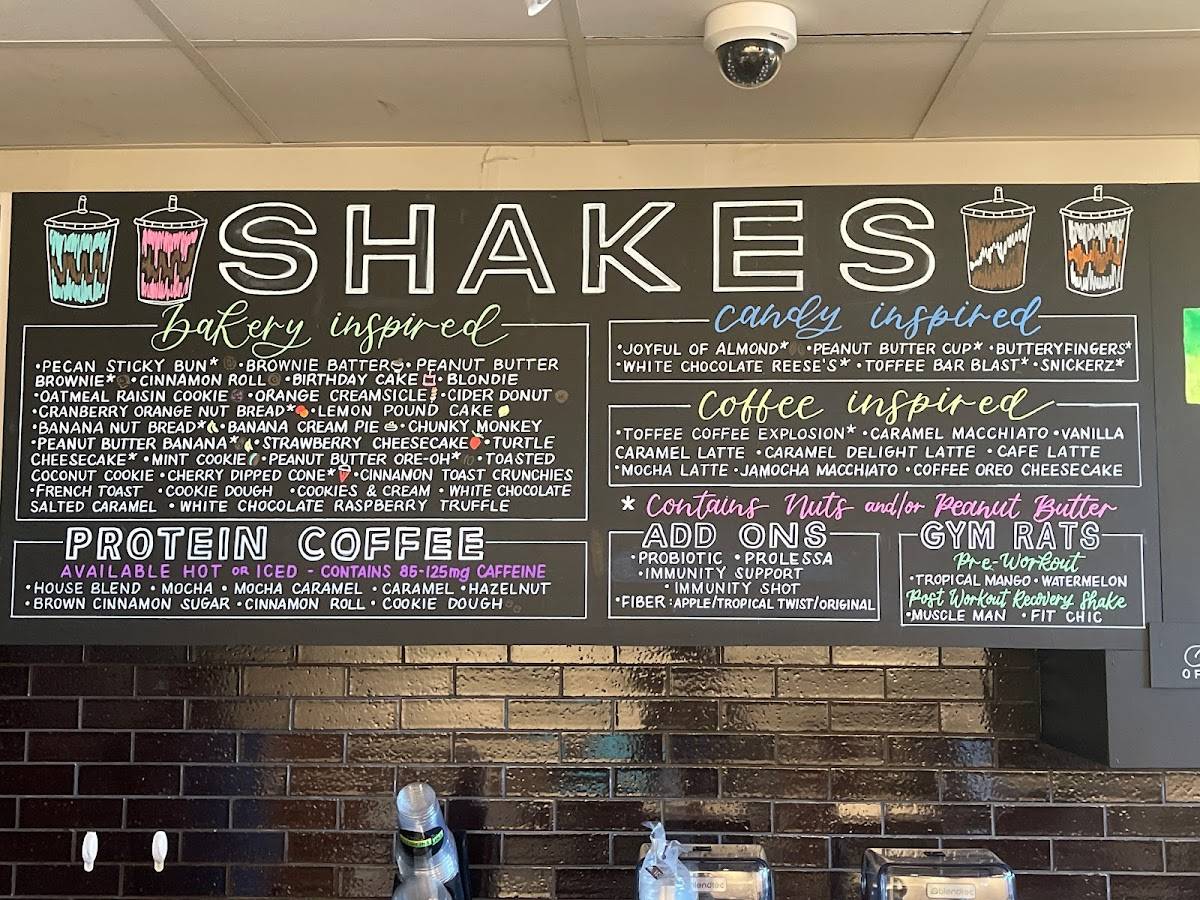 SHAKES
bakery inspired
•PECAN STICKY BUN* •BROWNIE BATTER •PEANUT BUTTER
BROWNIE* •CINNAMON ROLL •BIRTHDAY CAKE •BLONDIE
•OATMEAL RAISIN COOKIE •ORANGE CREAMSICLE •CIDER DONUT
•CRANBERRY ORANGE NUT BREAD* •LEMON POUND CAKE
•BANANA NUT BREAD* •BANANA CREAM PIE •CHUNKY MONKEY
•PEANUT BUTTER BANANA* •STRAWBERRY CHEESECAKE •TURTLE
CHEESECAKE* •MINT COOKIE •PEANUT BUTTER ORE-OH* •TOASTED
COCONUT COOKIE •CHERRY DIPPED CONE* •CINNAMON TOAST CRUNCHIES
•FRENCH TOAST •COOKIE DOUGH •COOKIES & CREAM •WHITE CHOCOLATE
SALTED CARAMEL •WHITE CHOCOLATE RASPBERRY TRUFFLE
PROTEIN COFFEE
AVAILABLE HOT OR ICED - CONTAINS 85-125mg CAFFEINE
•HOUSE BLEND •MOCHA •MOCHA CARAMEL •CARAMEL •HAZELNUT
•BROWN CINNAMON SUGAR •CINNAMON ROLL •COOKIE DOUGH
candy inspired
•JOYFUL OF ALMOND* •PEANUT BUTTER CUP* •BUTTERYFINGERS*
•WHITE CHOCOLATE REESE'S* •TOFFEE BAR BLAST* •SNICKERZ*
coffee inspired
•TOFFEE COFFEE EXPLOSION* •CARAMEL MACCHIATO •VANILLA
CARAMEL LATTE •CARAMEL DELIGHT LATTE •CAFE LATTE
•MOCHA LATTE •JAMOCHA MACCHIATO •COFFEE OREO CHEESECAKE
* Contains Nuts and/or Peanut Butter
ADD ONS
•PROBIOTIC •PROLESSA
•IMMUNITY SUPPORT
•IMMUNITY SHOT
•FIBER: APPLE/TROPICAL TWIST/ORIGINAL
GYM RATS
Pre-Workout
•TROPICAL MANGO •WATERMELON
Post Workout Recovery Shake
•MUSCLE MAN •FIT CHIC
blendtec
blendtec